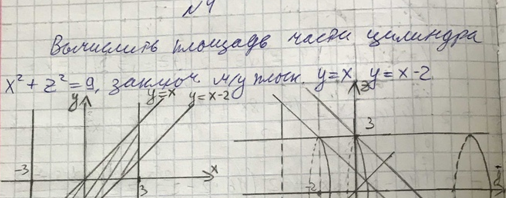 N4
Вычислить площадь части цилиндра
x² + z² = 9, заключ. м/у плоск. y=x y=x-2
y y=x y=x-2 z
3
-3 3 x -2